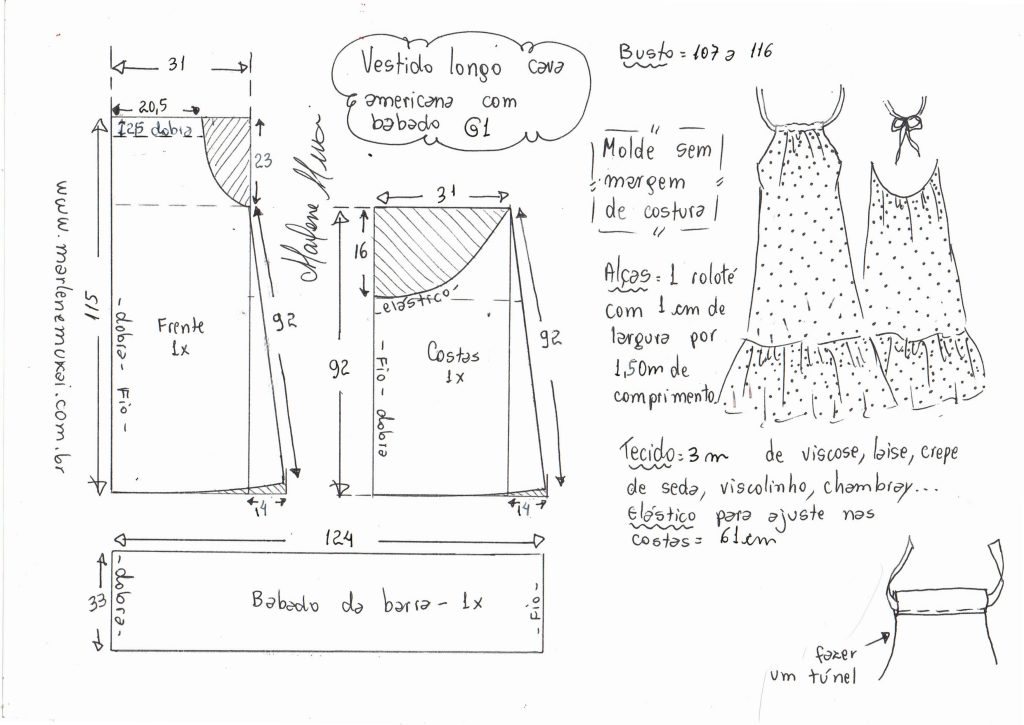 Vestido longo cava
americana com
babado G1
Busto = 107 a 116
Molde sem
margem
de costura
Alças = 1 roloté
com 1 cm de
largura por
1,50m de
comprimento
Tecido = 3 m de viscose, laise, crepe
de seda, viscolinho, chambray...
Elástico para ajuste nas
costas = 61 cm
fazer
um túnel
31
20,5
dobra
23
115
92
- dobra - Fio -
Frente
1x
14
www.marlenemukai.com.br
31
16
- elástico -
92
92
- Fio - dobra
Costas
1x
14
124
33
- dobra -
Babado da barra - 1x
- Fio -